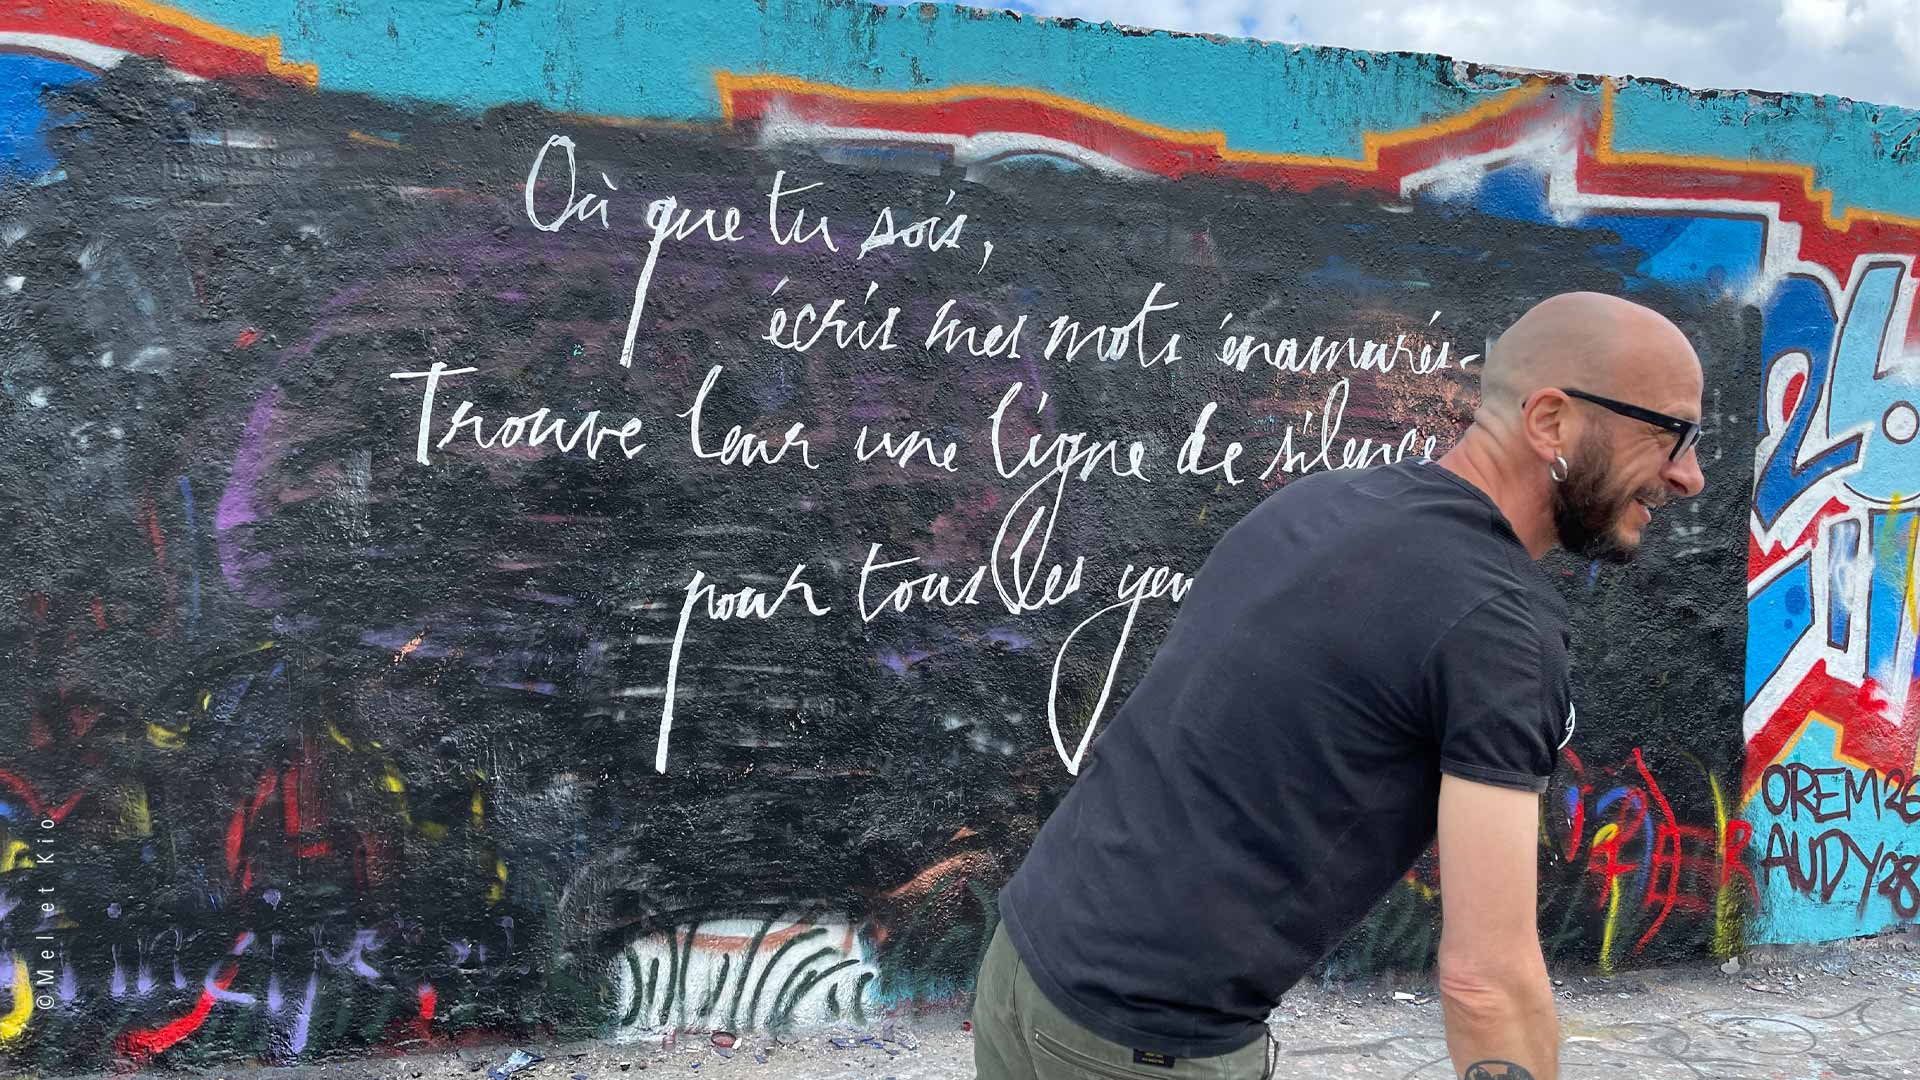 Où que tu sois,
écris mes mots énamurés.
Trouve leur une ligne de silence
pour tous les yeu
OREM 26
AUDY 28
©Mel et Kio